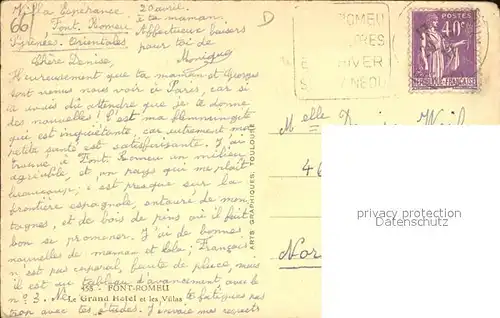 Villa Espérance
Font-Romeu
Pyrénées-Orientales
20 avril.
à ta maman.
Affectueux baisers
pour toi de
Monique
Chère Denise,
Heureusement que ta maman et Georges
sont venus nous voir à Paris, car si
à avais dû attendre que je te donne
des nouvelles! C'est ma flemmingite
qui est inquiétante, car autrement ma
petite santé est satisfaisante. J'ai
trouvé à Font Romeu un métier
agréable, et un pays qui me plaît
beaucoup; c'est presque sur la
frontière espagnole, entouré de mon-
tagnes, et de bois de pins où il fait
bon se promener. J'ai de bonnes
nouvelles de maman et Lola; François
n'est pas encore, faute de place, mais
il est au tableau d'avancement, avec le
n° 3. Ne te fatigues pas
trop avec tes études. J'envoie mes respects
66
D
ROMEU
HIVER
POSTES
40c
FRANÇAISE
Melle Denise Weil
46
Nor
ARTS GRAPHIQUES, TOULOUSE
455 - FONT-ROMEU
Le Grand Hotel et les Villas
privacy protection
Datenschutz